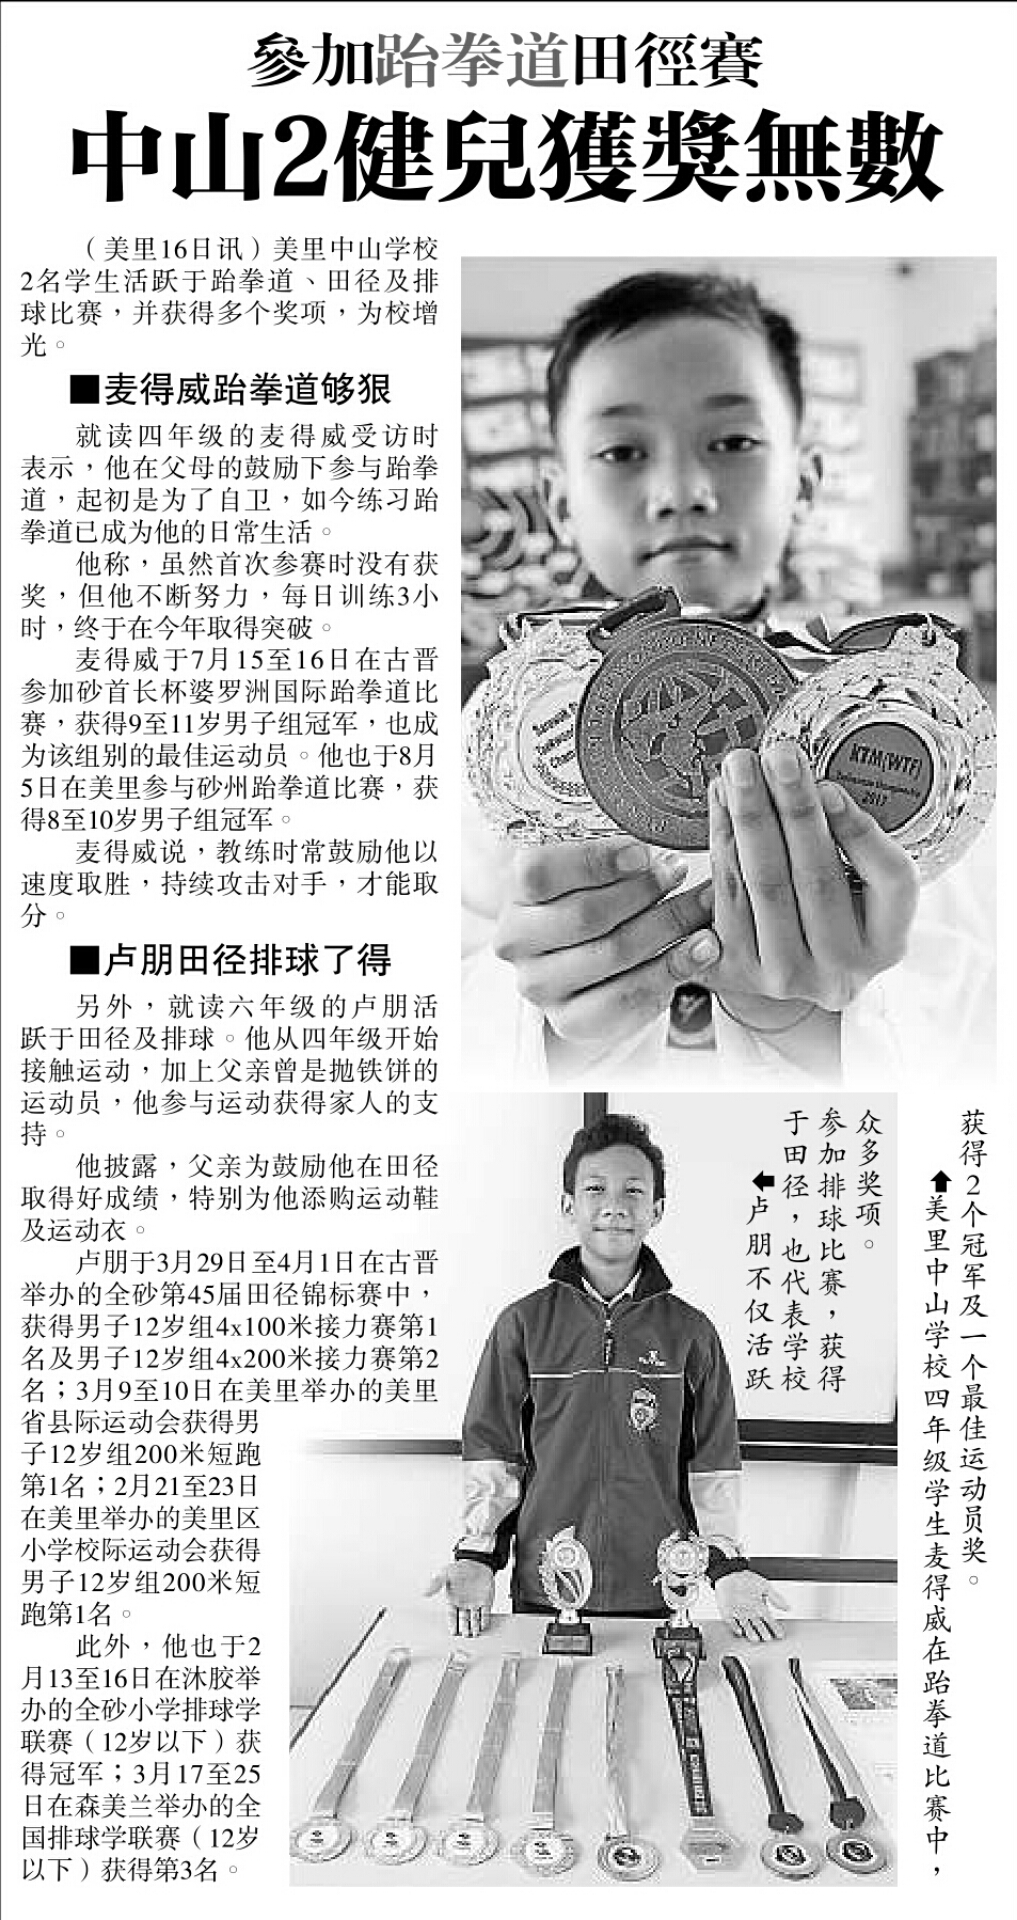 參加跆拳道田徑賽
中山2健兒獲獎無數
（美里16日讯）美里中山学校
2名学生活跃于跆拳道、田径及排
球比赛，并获得多个奖项，为校增
光。
■麦得威跆拳道够狠
就读四年级的麦得威受访时
表示，他在父母的鼓励下参与跆拳
道，起初是为了自卫，如今练习跆
拳道已成为他的日常生活。
他称，虽然首次参赛时没有获
奖，但他不断努力，每日训练3小
时，终于在今年取得突破。
麦得威于7月15至16日在古晋
参加砂首长杯婆罗洲国际跆拳道比
赛，获得9至11岁男子组冠军，也成
为该组别的最佳运动员。他也于8月
5日在美里参与砂州跆拳道比赛，获
得8至10岁男子组冠军。
麦得威说，教练时常鼓励他以
速度取胜，持续攻击对手，才能取
分。
■卢朋田径排球了得
另外，就读六年级的卢朋活
跃于田径及排球。他从四年级开始
接触运动，加上父亲曾是抛铁饼的
运动员，他参与运动获得家人的支
持。
他披露，父亲为鼓励他在田径
取得好成绩，特别为他添购运动鞋
及运动衣。
卢朋于3月29日至4月1日在古晋
举办的全砂第45届田径锦标赛中，
获得男子12岁组4x100米接力赛第1
名及男子12岁组4x200米接力赛第2
名；3月9至10日在美里举办的美里
省县际运动会获得男
子12岁组200米短跑
第1名；2月21至23日
在美里举办的美里区
小学校际运动会获得
男子12岁组200米短
跑第1名。
此外，他也于2
月13至16日在沐胶举
办的全砂小学排球学
联赛（12岁以下）获
得冠军；3月17至25
日在森美兰举办的全
国排球学联赛（12岁
以下）获得第3名。
KTM(WTF)
Taekwondo Championship
2017
⬆美里中山学校四年级学生麦得威在跆拳道比赛中，
获得2个冠军及一个最佳运动员奖。
⬅卢朋不仅活跃
于田径，也代表学校
参加排球比赛，获得
众多奖项。